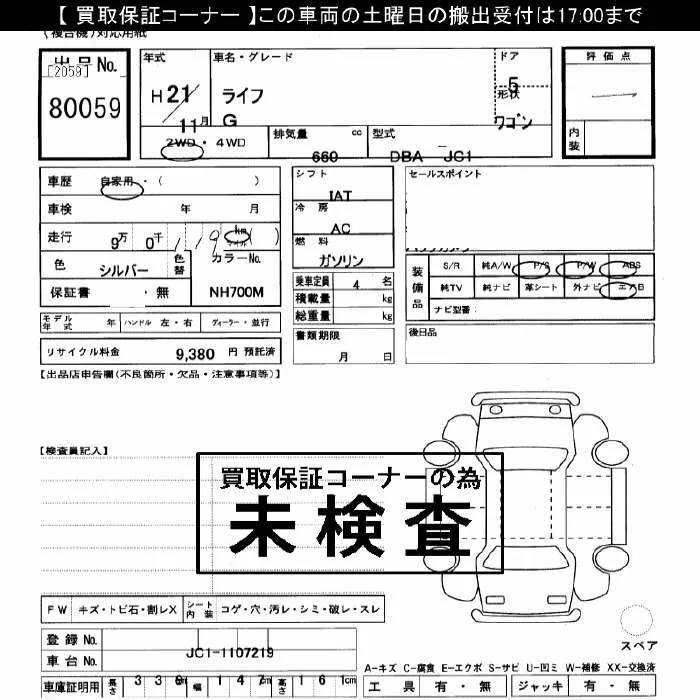 【 買取保証コーナー 】この車両の土曜日の搬出受付は17:00まで
(複合機)対応用紙
出品No.
[2059]
80059
年式
H 21/11月
車名・グレード
ライフ
G
ドア
5
形状
ワゴン
評価点
内装
2WD ・ 4WD
排気量 cc
660
型式
DBA JC1
車歴 自家用・( )
車検 年 月
走行 9万 0千 119 km マイル ( )
色 シルバー
色替
カラーNo.
NH700M
保証書 ・ 無
シフト
IAT
冷房
AC
燃料
ガソリン
乗車定員 4 名
積載量 kg
総重量 kg
セールスポイント
装備品
S/R 純A/W P/S P/W ABS
純TV 純ナビ 革シート 外ナビ エアB
ナビ型番:
モデル年式 年 ハンドル 左・右 ディーラー・並行
書類期限
月 日
後日品
リサイクル料金 9,380 円 預託済
【出品店申告欄(不良箇所・欠品・注意事項等)】
【検査員記入】
買取保証コーナーの為
未検査
FW キズ・トビ石・割レX シート内装 コゲ・穴・汚レ・シミ・破レ・スレ
登録No.
車台No. JC1-1107219
車庫証明用 長さ 339cm 幅 147cm 高さ 161cm
スペア
A-キズ C-腐食 E-エクボ S-サビ U-凹ミ W-補修 XX-交換済
工具 有・無 ジャッキ 有・無